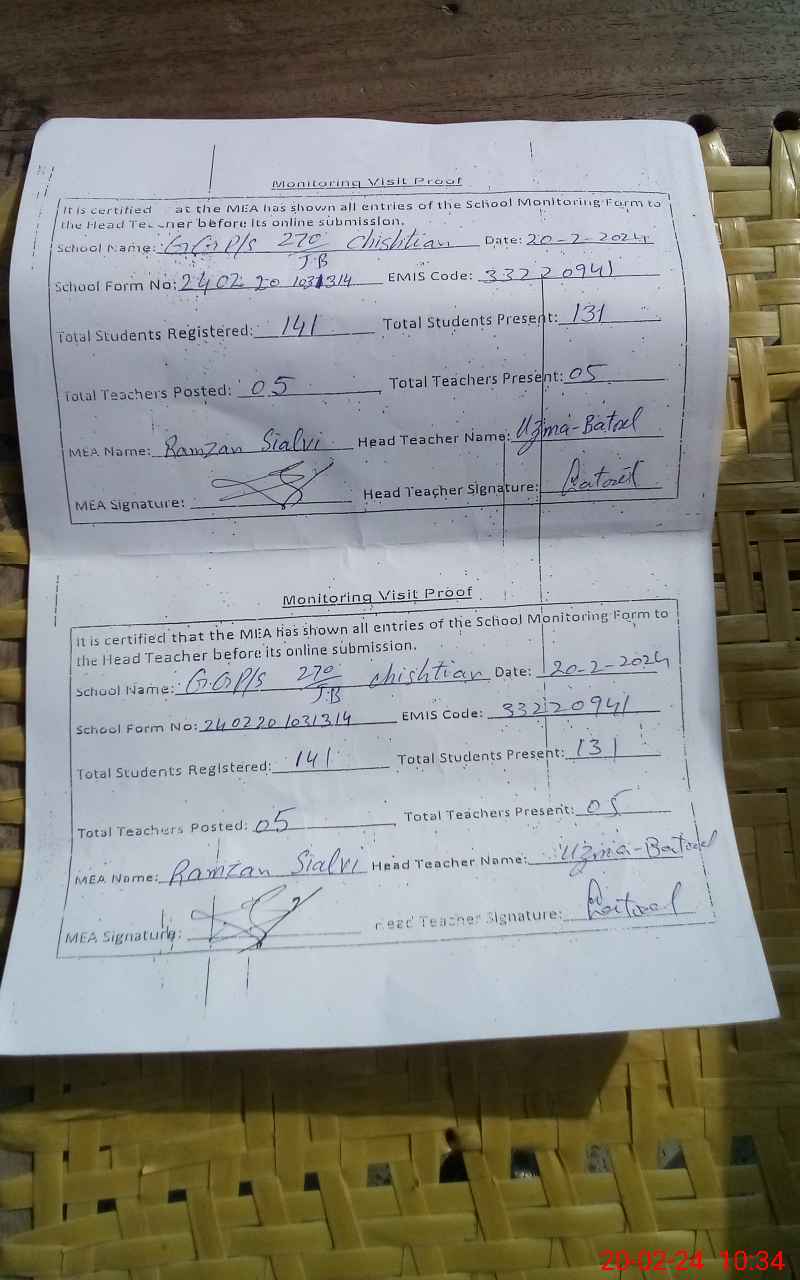 Monitoring Visit Proof
It is certified at the MEA has shown all entries of the School Monitoring Form to
the Head before its online submission.
School Name: GGP/S 270/J.B Chishtian Date: 20-2-2024
School Form No: 240220 1031314 EMIS Code: 33220941
Total Students Registered: 141 Total Students Present: 131
Total Teachers Posted: 05 Total Teachers Present: 05
MEA Name: Ramzan Sialvi Head Teacher Name: Uzma-Batool
MEA Signature: Head Teacher Signature: Batool
Monitoring Visit Proof
It is certified that the MEA has shown all entries of the School Monitoring Form to
the Head Teacher before its online submission.
School Name: GGP/S 270/J.B Chishtian Date: 20-2-2024
School Form No: 240220 1031314 EMIS Code: 33220941
Total Students Registered: 141 Total Students Present: 131
Total Teachers Posted: 05 Total Teachers Present: 05
MEA Name: Ramzan Sialvi Head Teacher Name: Uzma-Batool
MEA Signature: Head Teacher Signature: Batool
20-02-24 10:34